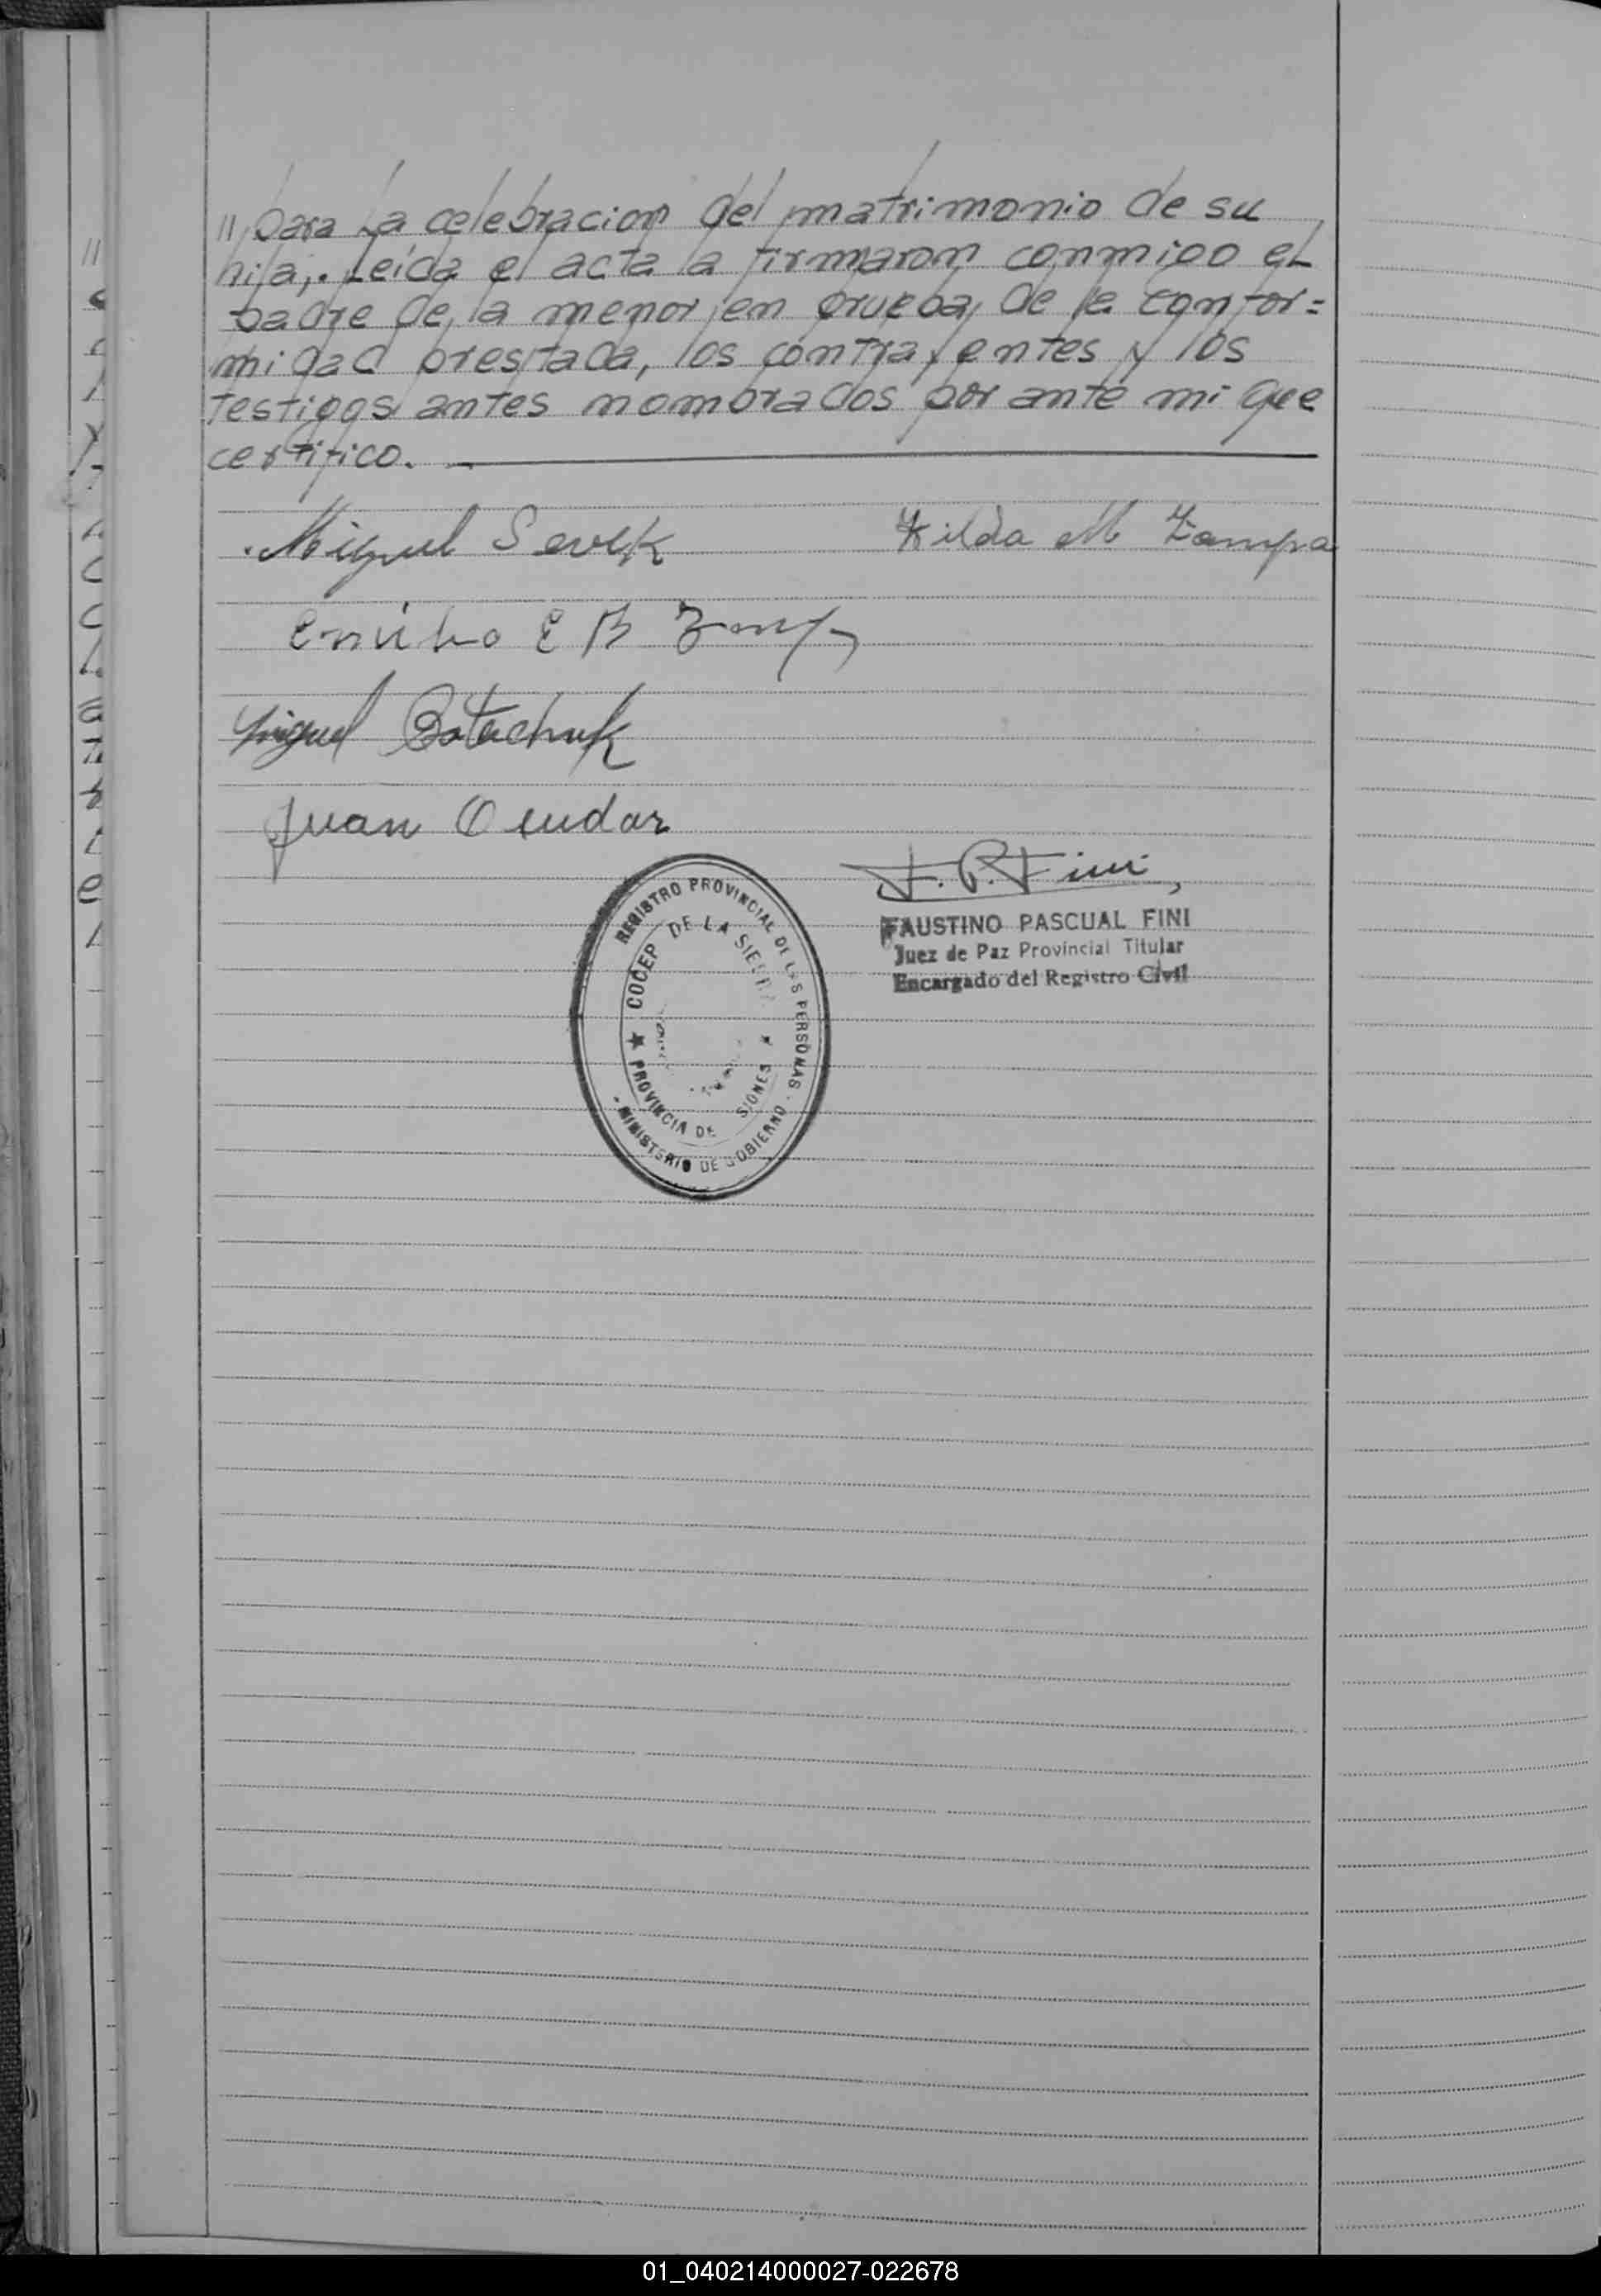 // para La celebracion del matrimonio de su
hija,. Leída el acta la firmaron conmigo el
padre de la menor en prueba de la confor=
midad prestada, los contrayentes y los
testigos antes nombrados por ante mi que
certifico. —
Miguel Sevek
Hilda M Zampa
Emilio E B
Miguel Batachuk
Juan
F. P. Fini
FAUSTINO PASCUAL FINI
Juez de Paz Provincial Titular
Encargado del Registro Civil
REGISTRO PROVINCIAL DE LAS PERSONAS
MINISTERIO DE GOBIERNO
COCEP DE LA SIERRA
PROVINCIA DE SIONES
01_040214000027-022678